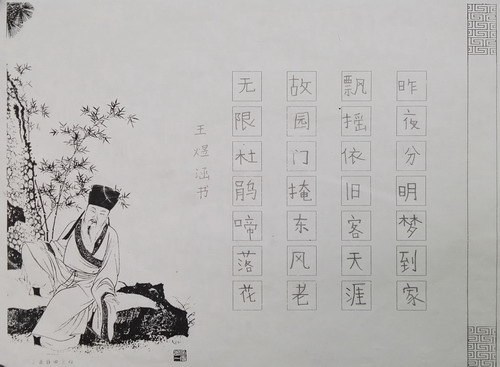 昨夜分明梦到家
飘摇依旧客天涯
故园门掩东风老
无限杜鹃啼落花
王煜涵书